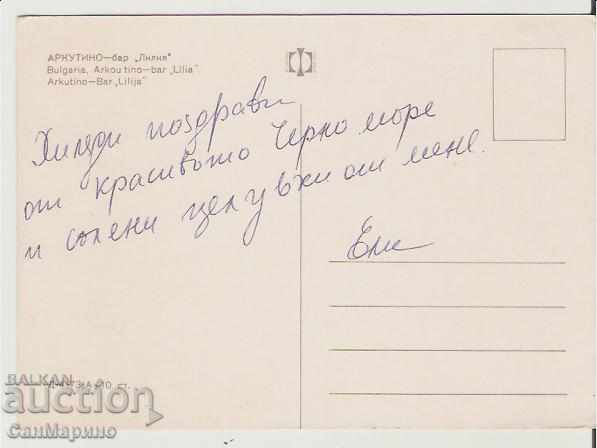 АРКУТИНО—бар „Лилия“
Bulgaria, Arkoutino—bar „Lilia“
Arkutino—Bar „Lilija“
Хиляди поздрави
от красивото Черно море
и солени целувки от мене.
Ели
10 ст.
BALKAN
auction
СанМарино